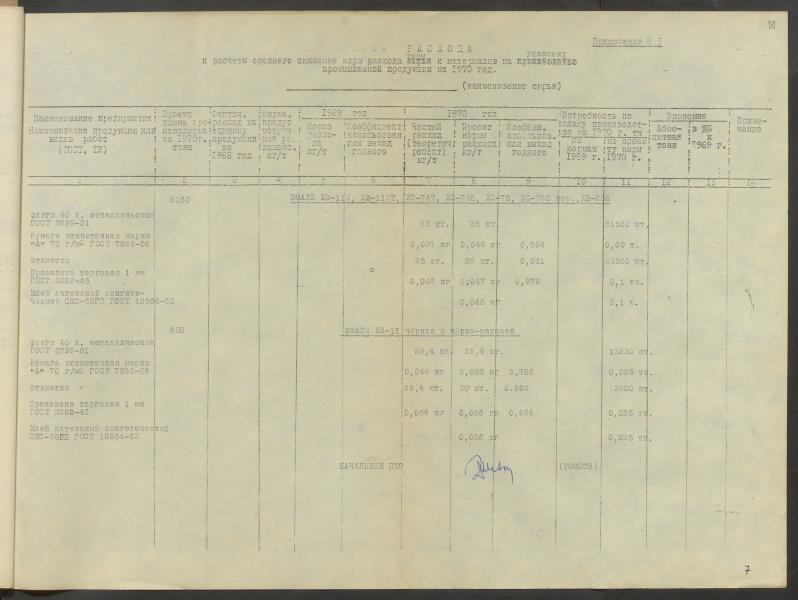 10
Приложение № 5
НОРМЫ РАСХОДА
тары упаковку
и расчеты среднего снижения норм расхода сырья и материалов на производство
промышленной продукции на 1970 год.
(наименование сырья)
Наименование предприятия Проект Фактич. Норма, 1969 год 1970 год Потребность по Экономия Приме-
Наименование продукции или плана про- расхода на Норма Коэффициент Чистый Проект Коэффиц. плану производст- Абсо- в % чание
видов работ изводства единицу расхо- использован. расход нормы использов. ва на 1970 г. тн лютная к
(ГОСТ, ТУ) на 1970г. продукции да или выход (теоретич. расхода или выход по по проек тонн 1969 г.
тонн за кг/т годного кг/т кг/т годного нормам ту норм
1968 год кг/т 1969 г. 1970 г.
1 2 3 4 5 6 7 8 9 10 11 12 13 14
2060 ЭМАЛИ ХВ-113, ХВ-113Т, ХС-748, ХС-75, ХС-720 кор.,
фляги 40 л. металлические
ГОСТ 5799-51 25 шт. 25 шт. 51500 шт.
Бумага этикеточная марки
"А" 70 г/м2 ГОСТ 7625-55 0,037 кг 0,046 кг 0,804 0,09 т.
Этикетки 25 шт. 26 шт. 0,961 53560 шт.
Проволока торговая 1 мм
ГОСТ 3282-46 0,046 кг 0,047 кг 0,979 0,1 тн.
Клей латексный синтети-
ческой СКС-65ГП ГОСТ 10564-63 0,046 кг 0,1 т.
450 ЭМАЛИ ХВ-16 чёрная и чёрно-матовая
фляги 40 л. металлические
ГОСТ 5799-51 29,4 шт. 29,4 шт. 13230 шт.
Бумага этикеточная марки
"А" 70 г/м2 ГОСТ 7625-55 0,044 кг 0,056 кг 0,785 0,025 тн.
Этикетки 29,4 шт. 30 шт. 0,980 13500 шт.
Проволока торговая 1 мм
ГОСТ 3282-46 0,054 кг 0,056 кг 0,964 0,025 тн.
Клей латексный синтетический
СКС-65ГП ГОСТ 10564-63 0,056 кг 0,025 тн.
НАЧАЛЬНИК ПТО (ТОМОСЯ)
7